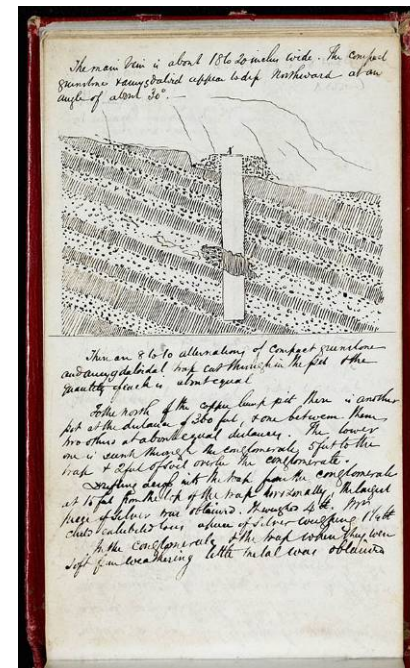 The main Vein is about 18 to 20 inches wide. The compact
greenstone & amygdaloid appear to dip Northward at an
angle of about 30°.—
There are 8 to 10 alternations of compact greenstone
and amygdaloidal trap cut through in the pit & the
quantity of each is about equal
To the north of the copper lump pit there is another
pit at the distance of 300 feet, & one between them
two others at about equal distances. The lower
one is sunk through the conglomerate, 5 feet to the
trap & 2 feet of soil over the conglomerate.
down into the trap from the conglomerate
at 15 feet from the top of the trap horizontally, the largest
piece of Silver was obtained. It weighs 4 lb. Prof
exhibited us a piece of Silver weighing 1¼ lb
In the conglomerate & the trap when they were
soft from weathering little metal was obtained